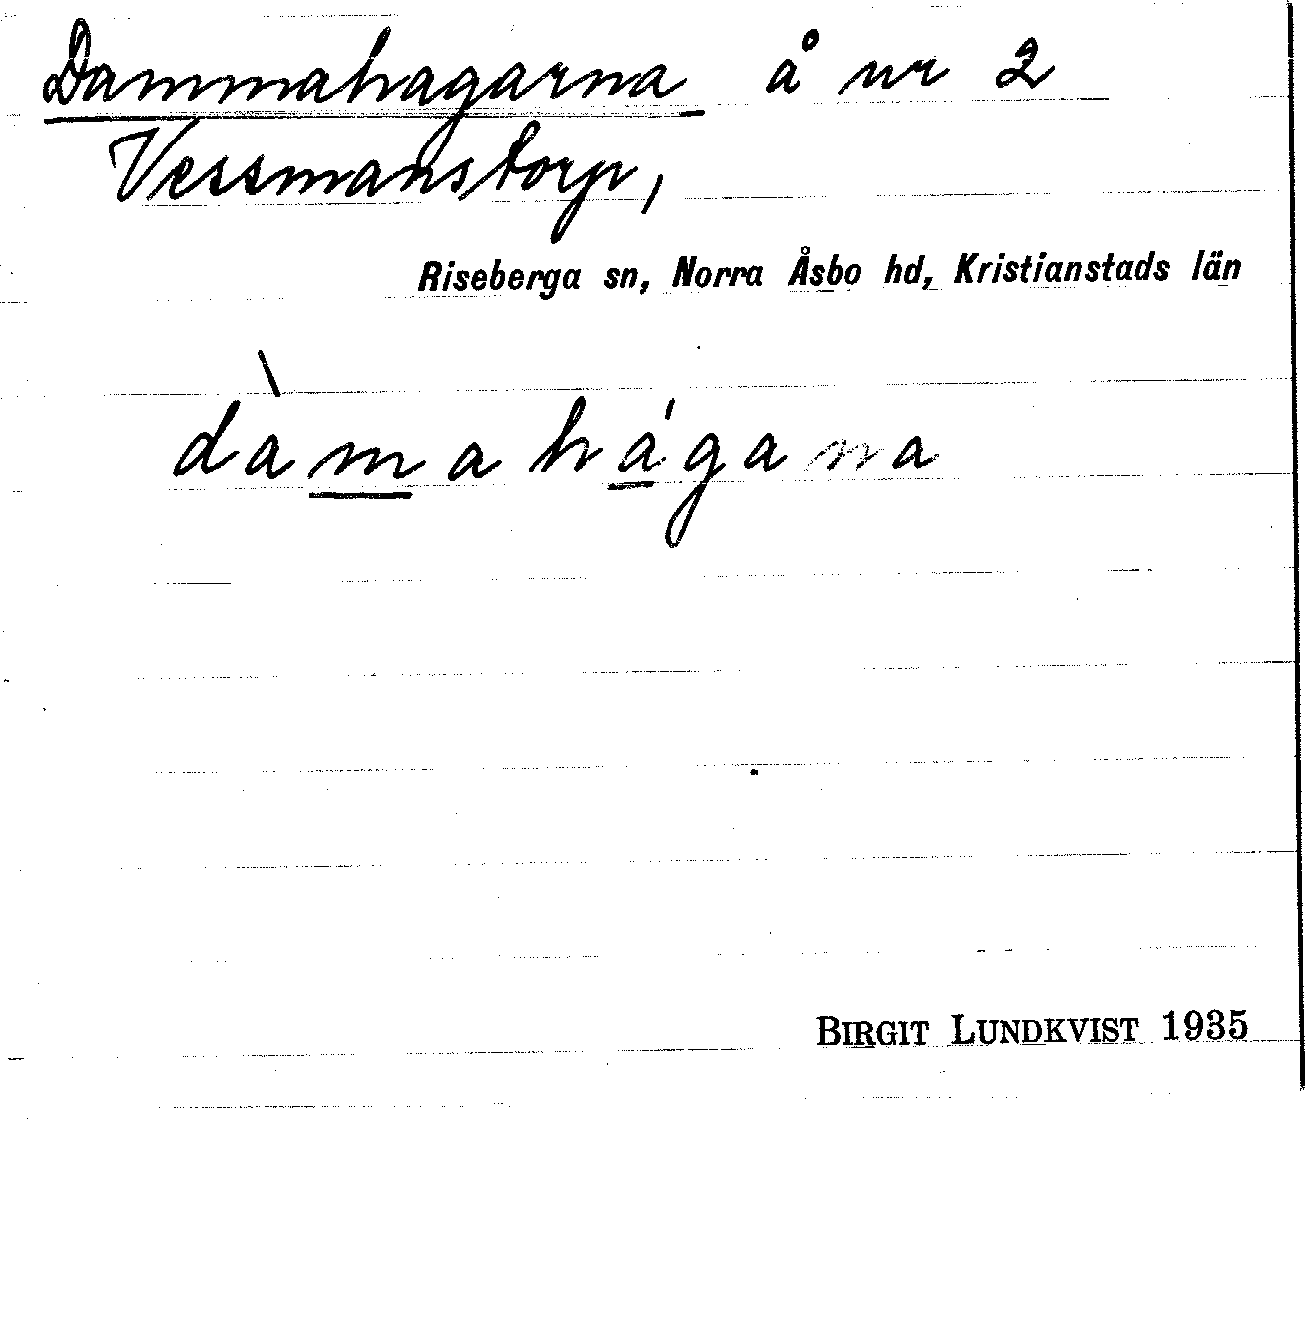 Dammahagarna å nr 2
Vessmanstorp,
Riseberga sn, Norra Åsbo hd, Kristianstads län
dàmahágana
BIRGIT LUNDKVIST 1935